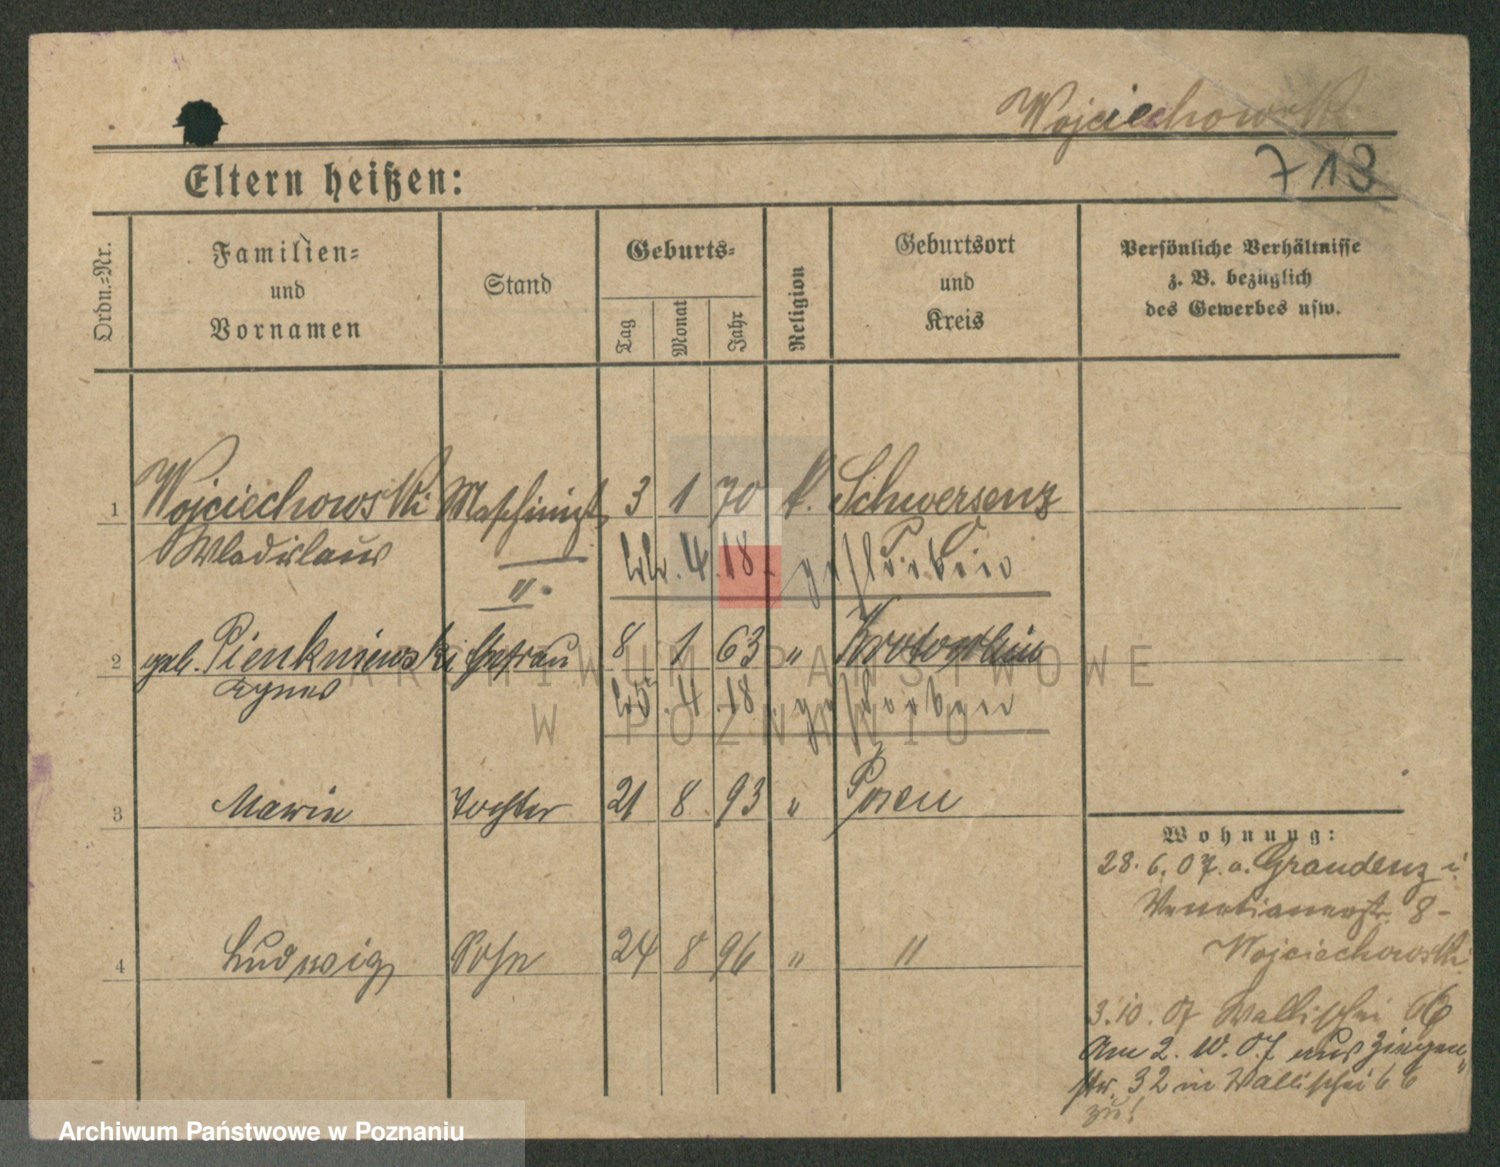 Wojciechowski
713
Eltern heißen:
Ordn.=Nr.
Familien=
und
Vornamen
Stand
Geburts=
Tag
Monat
Jahr
Religion
Geburtsort
und
Kreis
Persönliche Verhältnisse
z. B. bezüglich
des Gewerbes usw.
1 Wojciechowski Maschinist 3 1 70 k. Schwersenz
Wladislaus
4. 18 gestorben
2 geb. Pienkniewski Ehefrau 8 1 63 " Krotoschin
Agnes
4. 18 gestorben
3 Marie Tochter 21 8 93 " Posen
4 Ludwig Sohn 24 8 96 " "
Wohnung:
28. 6. 07. a. Graudenz i.
Venetianerstr. 8 -
Wojciechowski
3. 10. 07 Wallischei 66
Am 2. 10. 07 aus Ziegen
str. 32 in Wallischei 66
zu!
ARCHIWUM PAŃSTWOWE
W POZNANIU
Archiwum Państwowe w Poznaniu